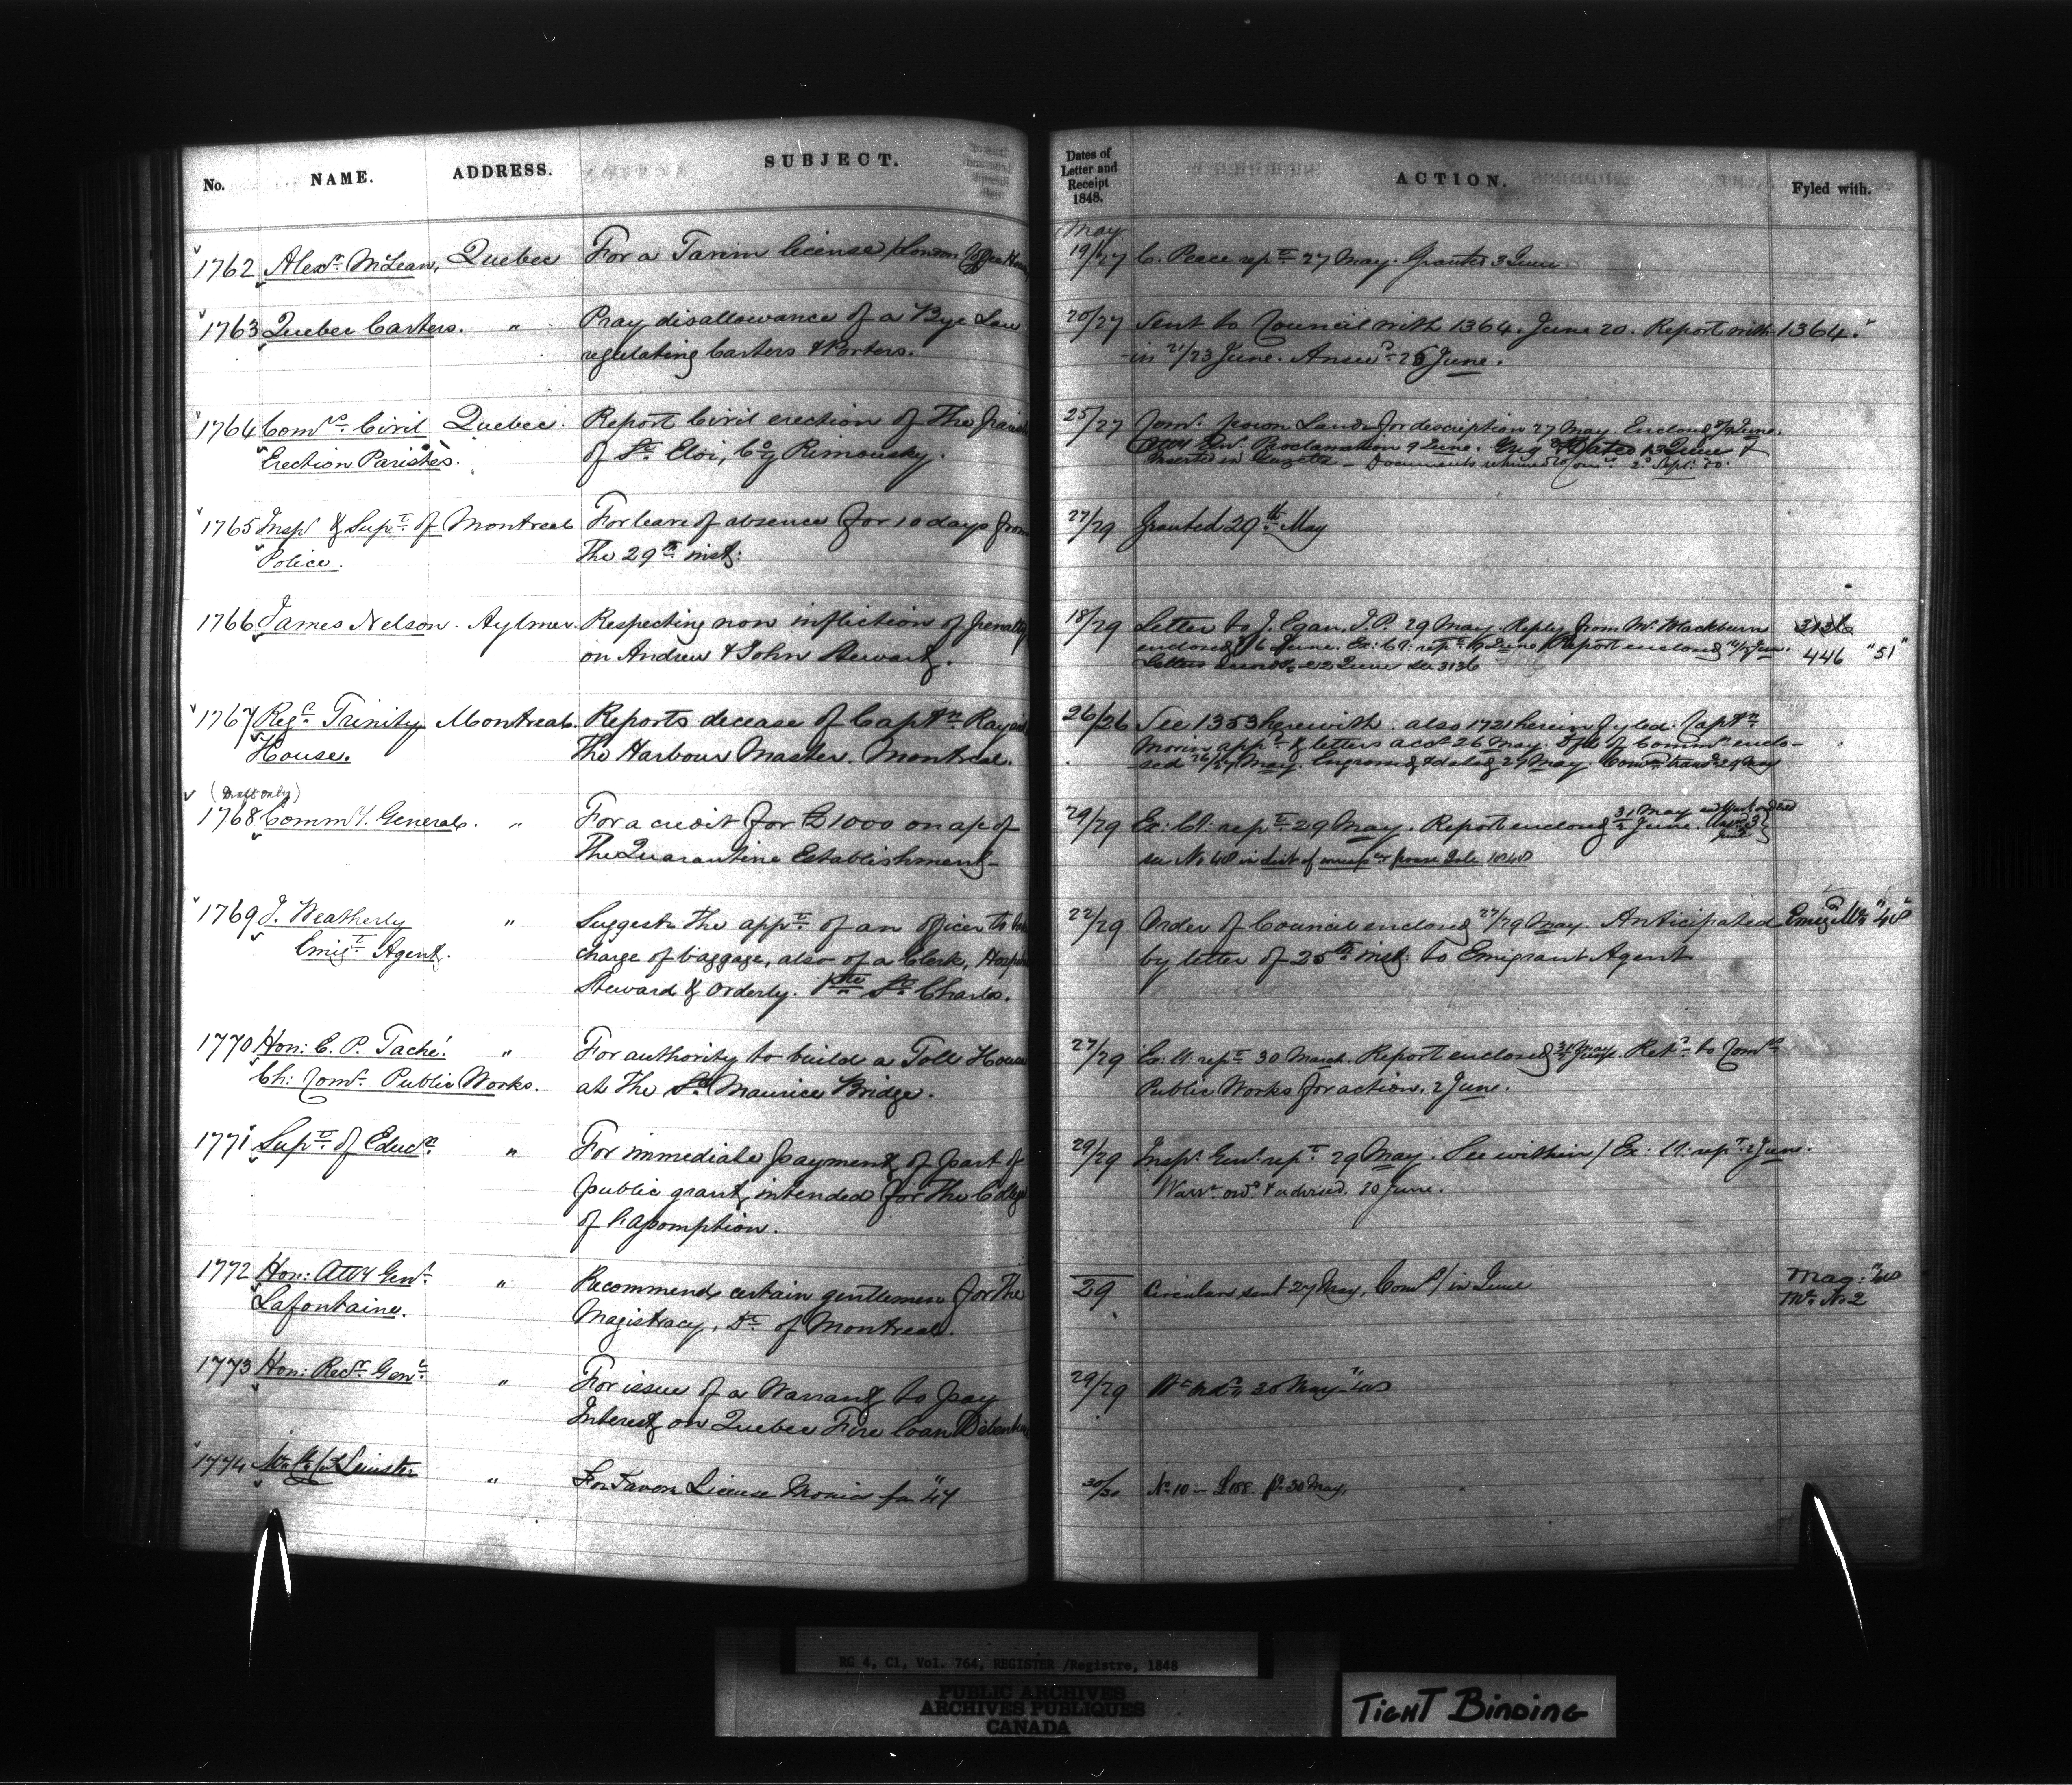 No. NAME. ADDRESS. SUBJECT.
1762 Alexr. McLean, Quebec For a Tavern license
1763 Quebec Carters. " Pray disallowance of a Bye Law
regulating Carters & Porters.
1764 Comrs. Civil Quebec. Report Civil erection of The Parish
Erection Parishes. of St. Eloi, Co. Rimousky.
1765 Inspr. & Supt. of Montreal For leave of absence for 10 days from
Police. The 29th inst:
1766 James Nelson. Aylmer. Respecting non infliction of penalty
on Andrew & John Stewart.
1767 Regr. Trinity Montreal. Reports decease of Captn.
House. The Harbour Master. Montreal.
(Draft only)
1768 Commy. General. " For a credit for £1000 on a/c of
The Quarantine Establishment
1769 J. Weatherly " Suggests the appt. of an officer to
Emigt. Agent. charge of baggage, also of a Clerk,
Steward & Orderly. Pte. St. Charles.
1770 Hon: E. P. Taché. " For authority to build a Toll House
Ch: Comr. Public Works. at The St. Maurice Bridge.
1771 Supt. of Educn. " For immediate payment of part of
public grant intended for The College
of L'assomption.
1772 Hon: Atty Genl. " Recommends certain gentlemen for The
Lafontaine. Magistracy, Dt. of Montreal.
1773 Hon: Recr. Genl. " For issue of a Warrant to pay
Interest on Quebec Fire loan
1774 " For Tavern License Monies for "47
Dates of
Letter and
Receipt
1848.
ACTION. Fyled with.
May
19/27 C. Peace rept. 27 May. Granted 3 June
20/27 Sent to Council with 1364. June 20. Report with 1364.
in 21/23 June. Answd. 26 June.
25/27 Comr. Crown Lands for description 27 May. Enclosed June.
Proclamation 9 June. 13 June &
Inserted in Gazette - Documents returned to Comrs. 2d Sept. 50.
27/29 Granted 29th May
18/29 Letter to J. Egan, J.P. 29 May. Reply from Mr. Blackburn 3136
enclosed 6 June. Ex: Cl: rept. June Report enclosed June. 446 "51"
22 June see 3136
26/26 See 1353 herewith. also 1721 herein fyled. Captn.
Morin appd. & letters accdy 26 May. Dft of Commn. enclo-
sed 26/27 May. Engrossed & dated 27 May. 29 May
29/29 Ex: Cl: rept. 29 May. Report enclosed 31 May June.
see No 48 in list of
22/29 Order of Council enclosed 27/29 May. Anticipated "48"
by letter of 25th inst: to Emigrant Agent
27/29 Ex: Cl: rept. 30 March. Report enclosed Retd. to Comrs.
Public Works for action. 2 June.
29/29 Inspr. Genl. rept. 29 May. See within / Ex: Cl: rept. 2 June.
Warrt. ord. & advised. 20 June.
29 Circulars sent 27 May, in June Mag: "48
No 2
29/29 30 May "48
30/30 No. 10 - 30 May.
RG 4, C1, Vol. 764, REGISTER /Registre, 1848
PUBLIC ARCHIVES
ARCHIVES PUBLIQUES
CANADA
TIGHT BINDING